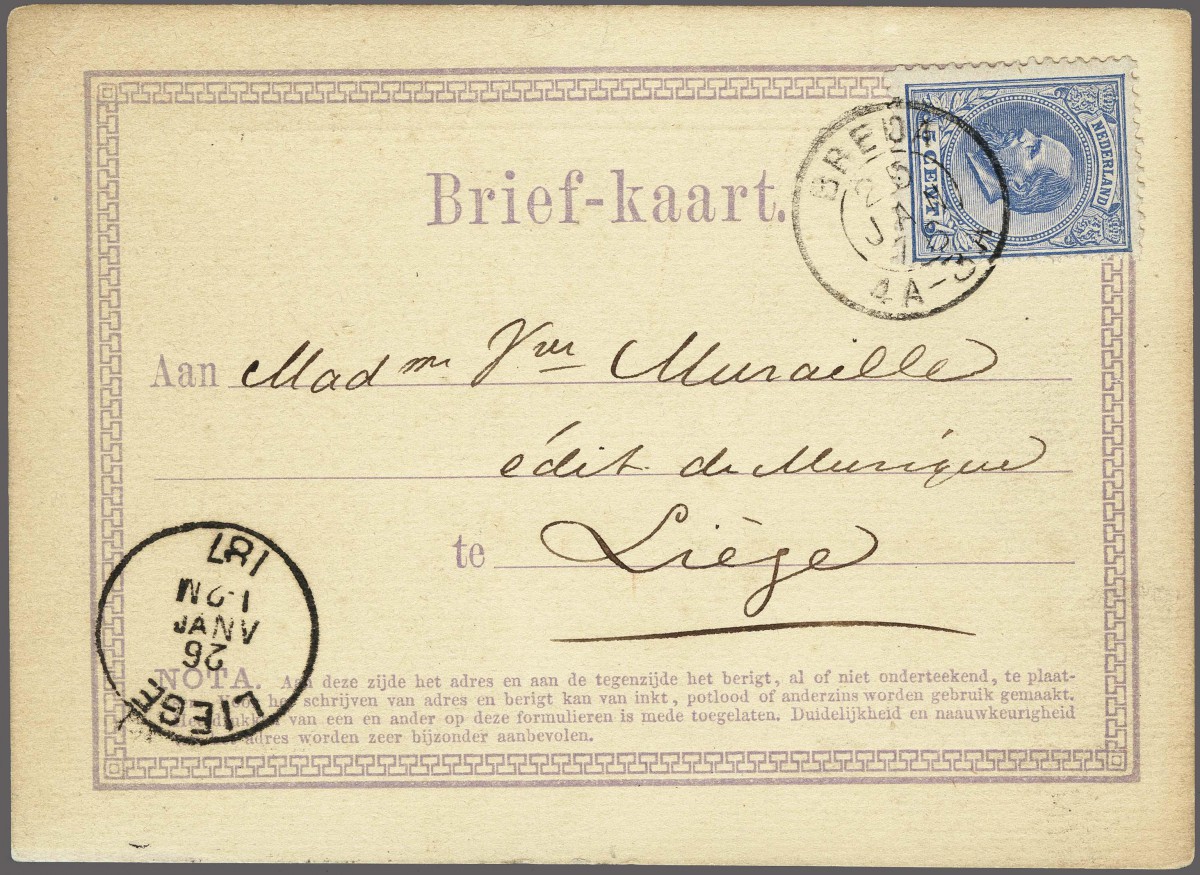 Brief-kaart.
NEDERLAND
5 CENT
BREDA
25
JAN
4A-5
Aan Mad me Vve Muraille
édit. de Musique
te Liège
187
1-2 M
JANV
26
LIEGE
NOTA. Aan deze zijde het adres en aan de tegenzijde het berigt, al of niet onderteekend, te plaat-
het schrijven van adres en berigt kan van inkt, potlood of anderzins worden gebruik gemaakt.
van een en ander op deze formulieren is mede toegelaten. Duidelijkheid en naauwkeurigheid
adres worden zeer bijzonder aanbevolen.